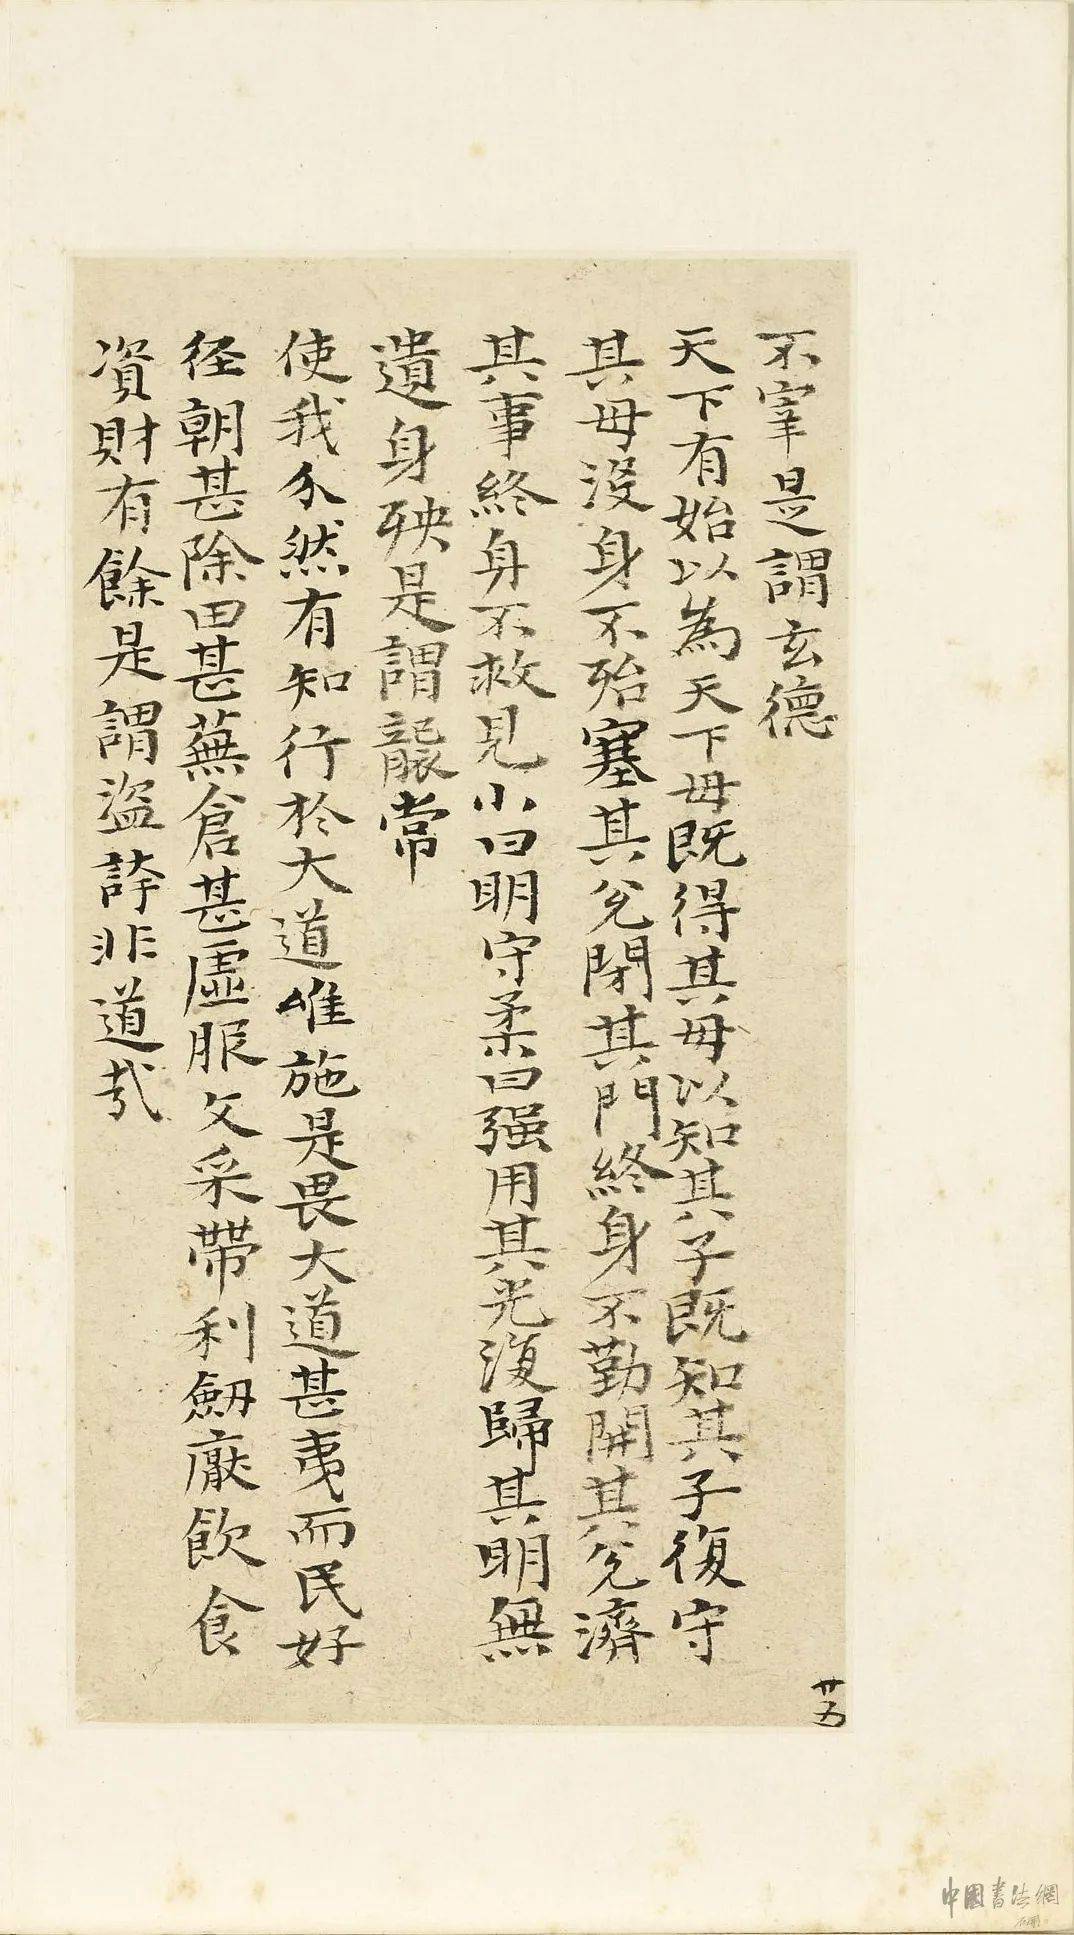 不宰是謂玄德
天下有始以為天下母既得其母以知其子既知其子復守
其母沒身不殆塞其兌閉其門終身不勤開其兌濟
其事終身不救見小曰明守柔曰强用其光復歸其明無
遺身殃是謂襲常
使我介然有知行於大道唯施是畏大道甚夷而民好
径朝甚除田甚蕪倉甚虛服文采帶利劔厭飲食
資財有餘是謂盜誇非道哉
廿五
中國書法網